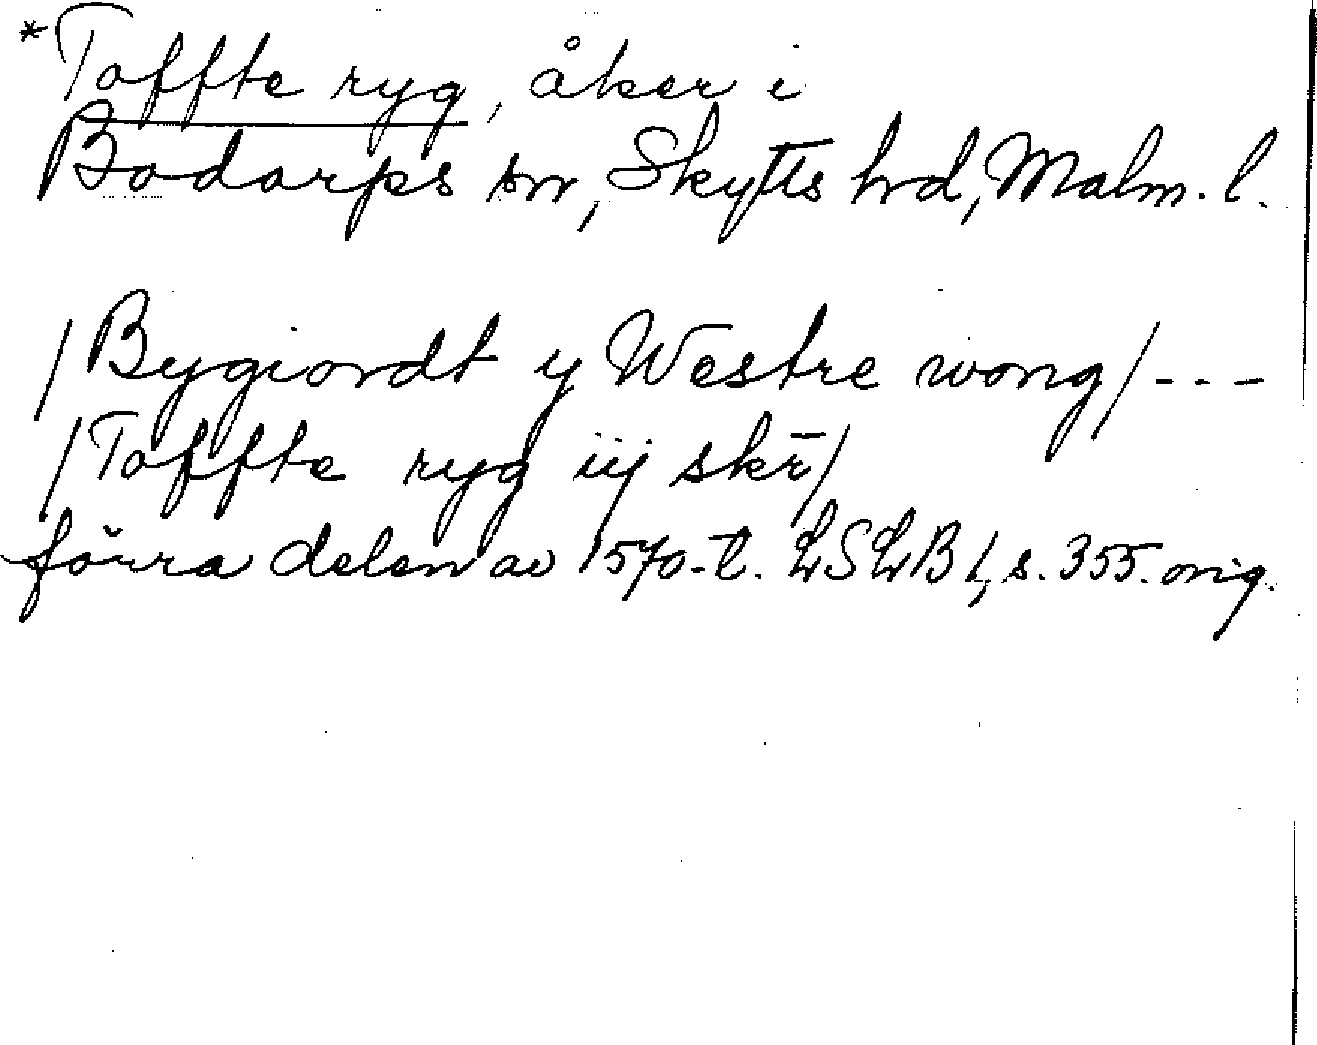 *Toffte ryg, åker i
Bodarps sn, Skytts hd, Malm. l.
/Bygiordt y Westre wong/ - - -
/Toffte ryg iij skr̄/
förra delen av 1570-t. LSLB 1, s. 355. orig.